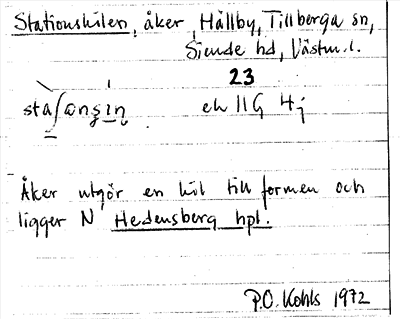 Stationskilen, åker, Hällby, Tillberga sn,
Siende hd, Västm. l.
23
ek 11G 4j
Åker utgör en kil till formen och
ligger N Hedensberg hpl.
P.O. Kohls 1972